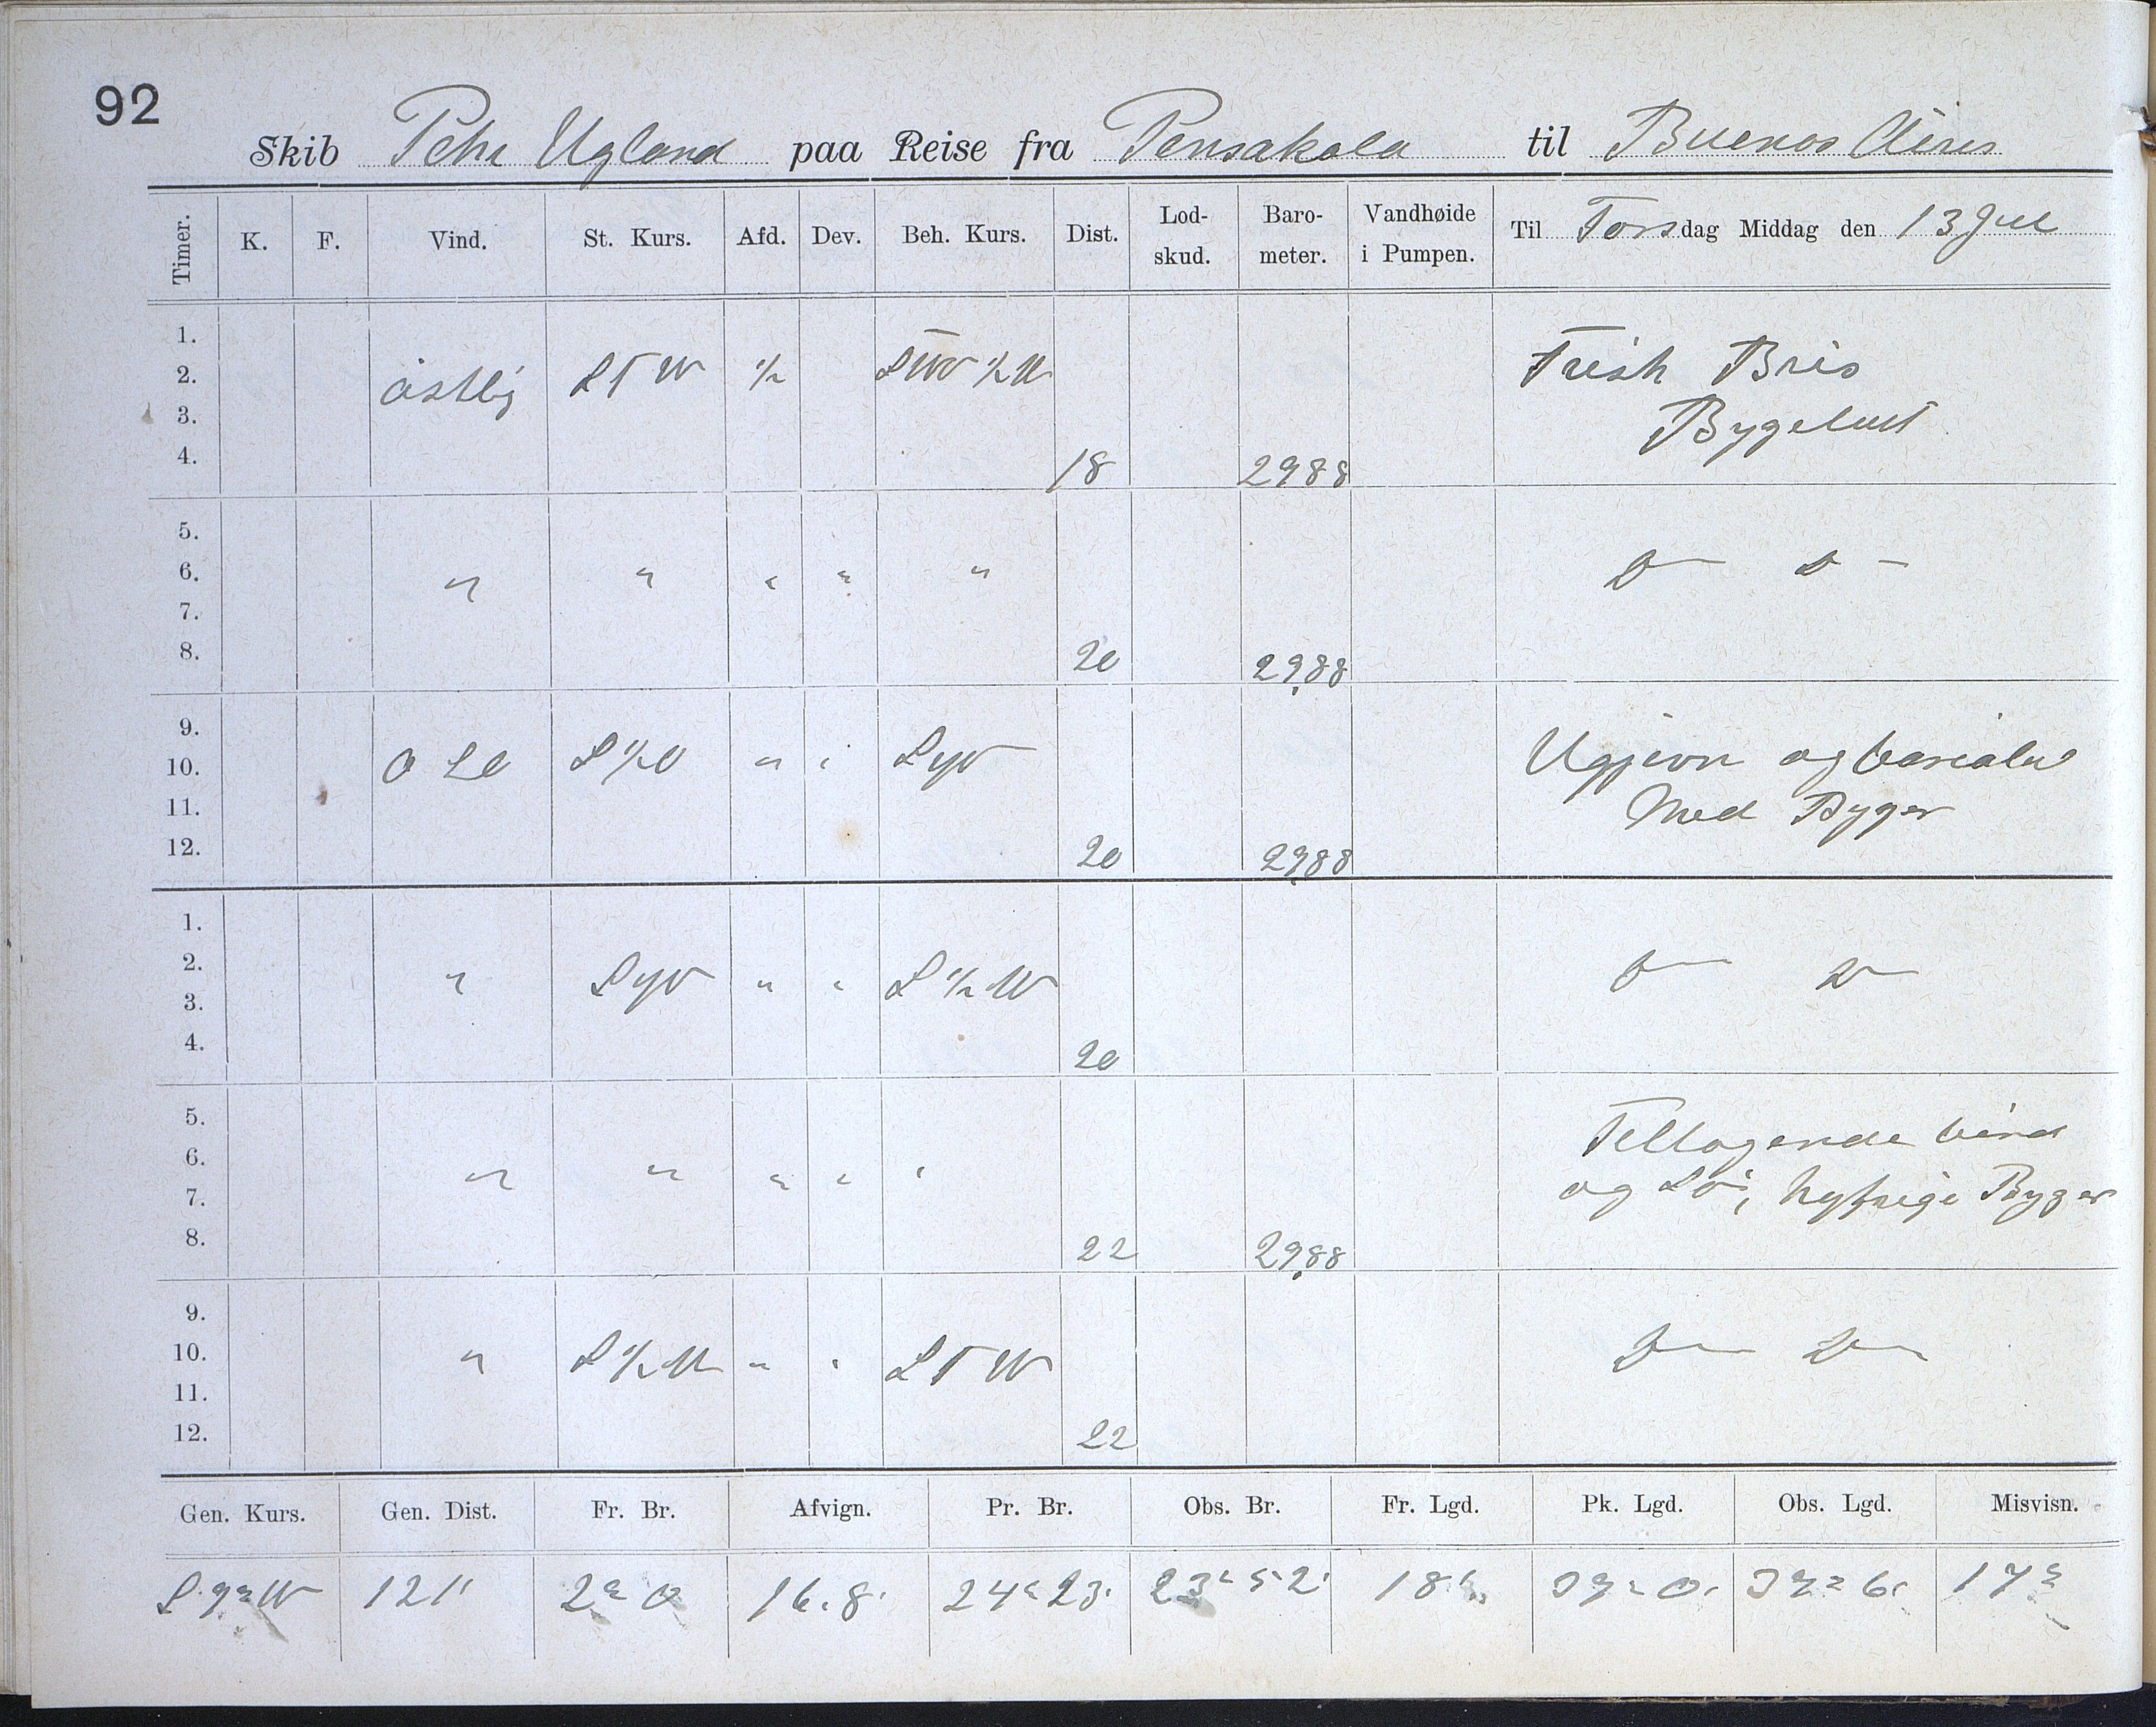 92
Skib Pehr Ugland paa Reise fra Pensakola til Buenos Aires
Timer. K. F. Vind. St. Kurs. Afd. Dev. Beh. Kurs. Dist. Lod-skud. Baro-meter. Vandhøide i Pumpen. Til Torsdag Middag den 13 Jul
1.
2. östlig STW 1/2 Frisk Bris
3. Bygelust
4. 18 2988
5.
6. " " " " " D— D—
7.
8. 20 29,88
9.
10. O S O S 1/2 O " " Syd Ugjevn og variabel
11. Med Byger
12. 20 29,88
1.
2. " Syd " " S 1/2 W D— D—
3.
4. 20
5. Tiltagende vind
6. " " " " "
7. og Sö, Byger
8. 22 29,88
9.
10. " S 1/2 W " " STW D— D—
11.
12. 22
Gen. Kurs. Gen. Dist. Fr. Br. Afvign. Pr. Br. Obs. Br. Fr. Lgd. Pk. Lgd. Obs. Lgd. Misvisn.
S. 9° W 121' 2° 0 16.8' 24° 23' 23° 52' 18'